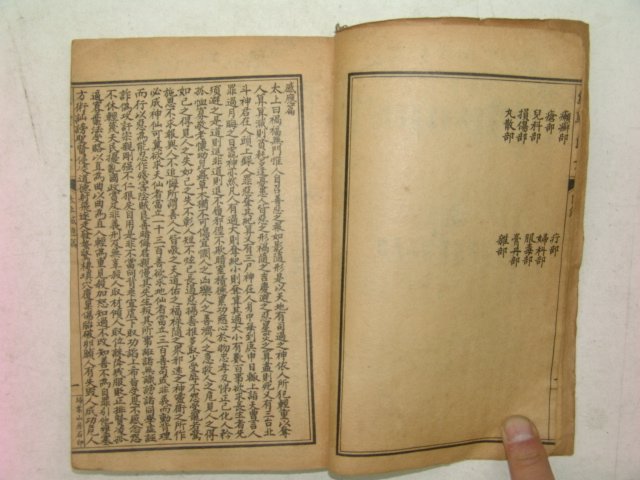 瘡部
兒科部
損傷部
丸散部
疔部
婦科部
服毒部
膏丹部
雜部
感應篇
太上曰禍福無門惟人自召善惡之報如影隨形是以天地有司過之神依人所犯輕重以奪
人算算減則貧耗多逢憂患人皆惡之刑禍隨之吉慶避之惡星災之算盡則死又有三台北
斗神君在人頭上錄人罪惡奪其紀算又有三尸神在人身中每到庚申日輒上詣天曹言人
罪過月晦之日竈神亦然凡人有過大則奪紀小則奪算其過大小有數百事欲求長生者先
須避之是道則進非道則退不履邪徑不欺暗室積德累功慈心於物忠孝友悌正己化人矜
孤恤寡敬老懷幼昆蟲草木猶不可傷宜憫人之凶樂人之善濟人之急救人之危見人之得
如己之得見人之失如己之失不彰人短不炫己長遏惡揚善推多取少受辱不怨受寵若驚
施恩不求報與人不追悔所謂善人人皆敬之天道佑之福祿隨之衆邪遠之神靈衛之所作
必成神仙可冀欲求天仙者當立一千三百善欲求地仙者當立三百善苟或非義而動背理
而行以惡為能忍作殘害陰賊良善暗侮君親慢其先生叛其所事誑諸無識謗諸同學虛誣
詐偽攻訐宗親剛強不仁狠戾自用是非不當向背乖宜虐下取功諂上希旨受恩不感念怨
不休輕蔑天民擾亂國政賞及非義刑及無辜殺人取財傾人取位誅降戮服貶正排賢凌孤
逼寡棄法受賂以直為曲以曲為直入輕為重見殺加怒知過不改知善不為自罪引他壅塞
方術訕謗聖賢侵凌道德射飛逐走發蟄驚棲填穴覆巢傷胎破卵願人有失毀人成功危人